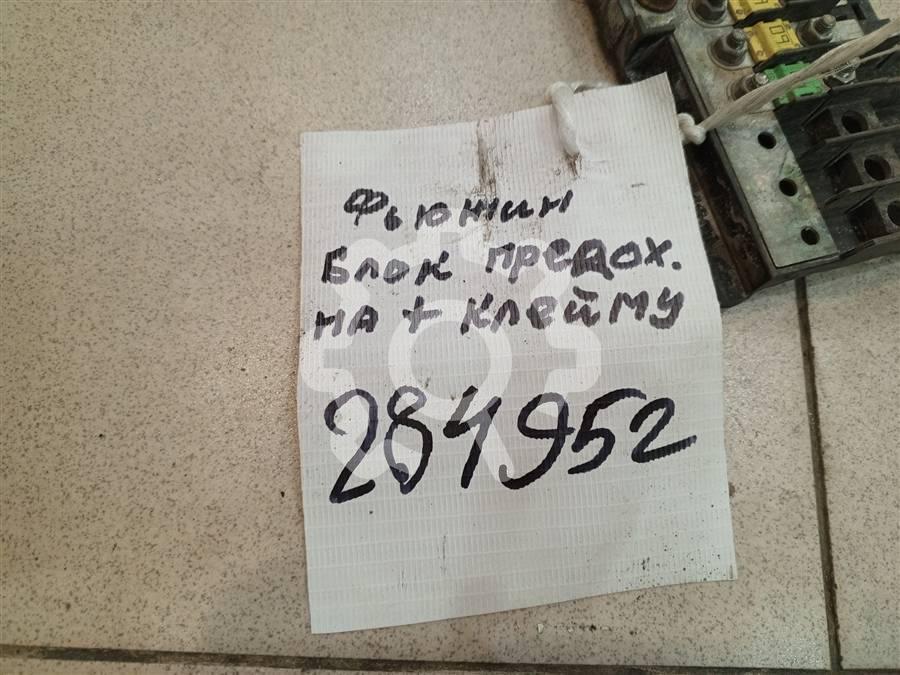 Фьюжин
блок предох.
на + клейму
284952
60